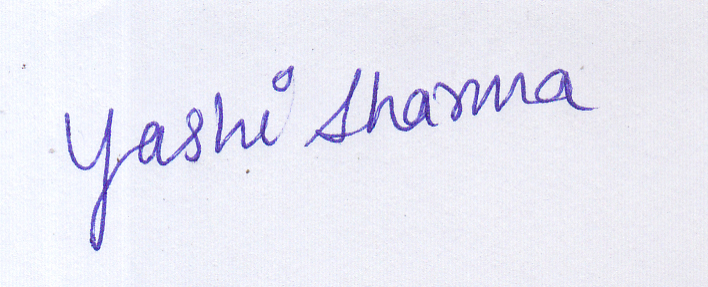 Yashi Sharma